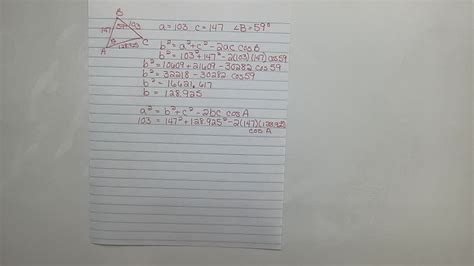 B
a = 103 c = 147 ∠B = 59°
147 59° 103
A B 128.925 C
b² = a² + c² - 2ac cos B
b² = 103² + 147² - 2(103)(147) cos 59
b² = 10609 + 21609 - 30282 cos 59
b² = 32218 - 30282 cos 59
b² = 16621.617
b = 128.925
a² = b² + c² - 2bc cos A
103 = 147² + 128.925² - 2(147)(128.925)
cos A